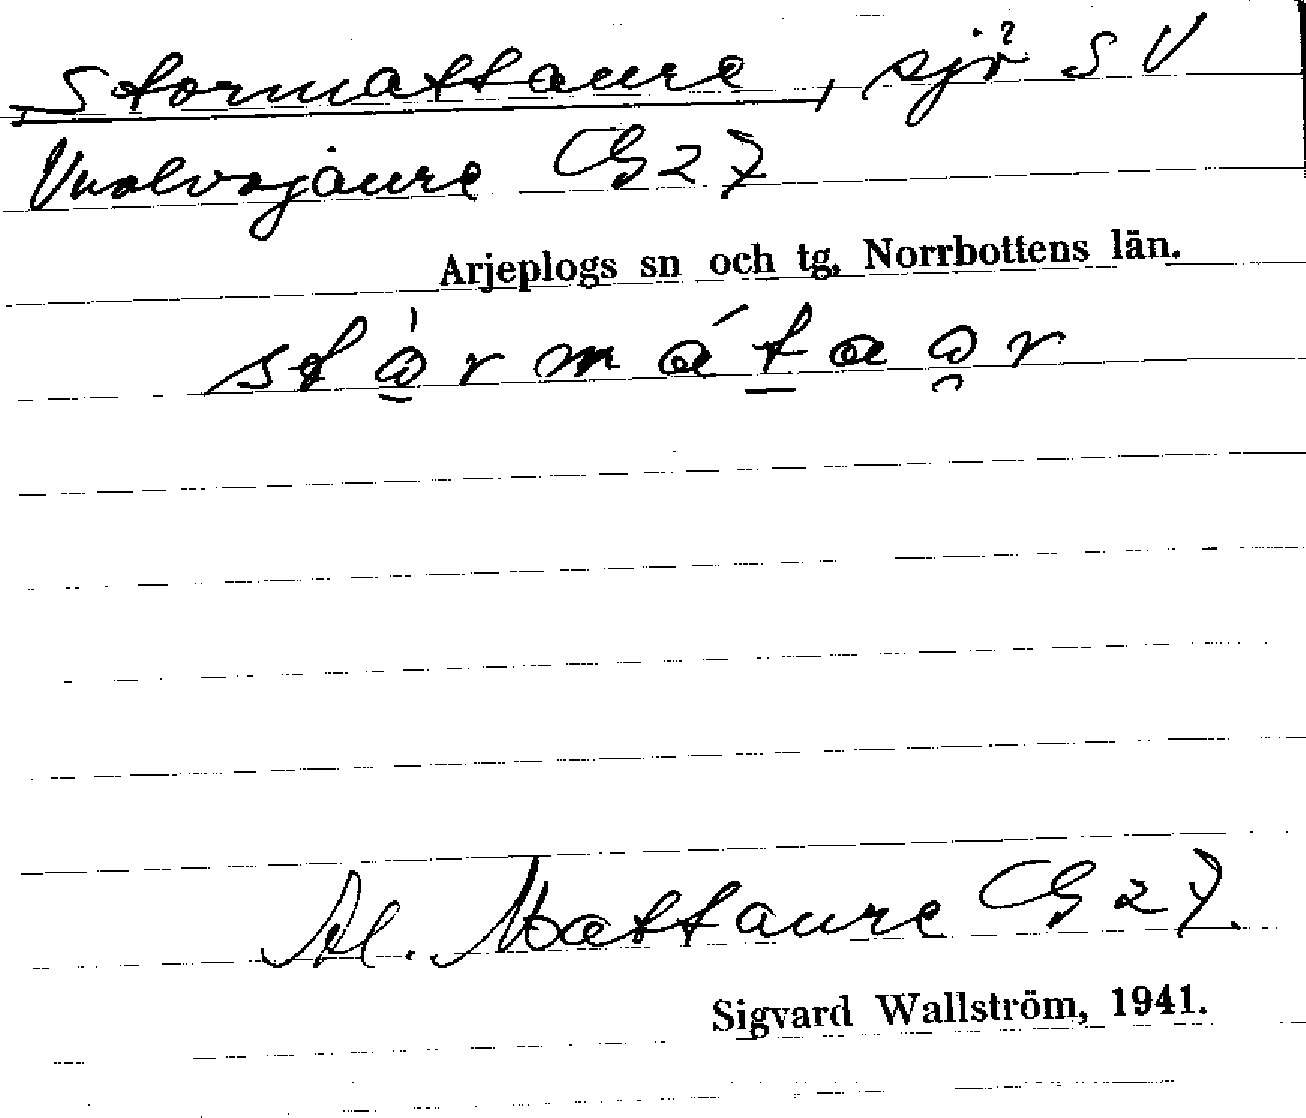 Stormattaure, sjö SV
Vuolvojaure G 27
Arjeplogs sn och tg, Norrbottens län.
Mattaure G 27.
Sigvard Wallström, 1941.